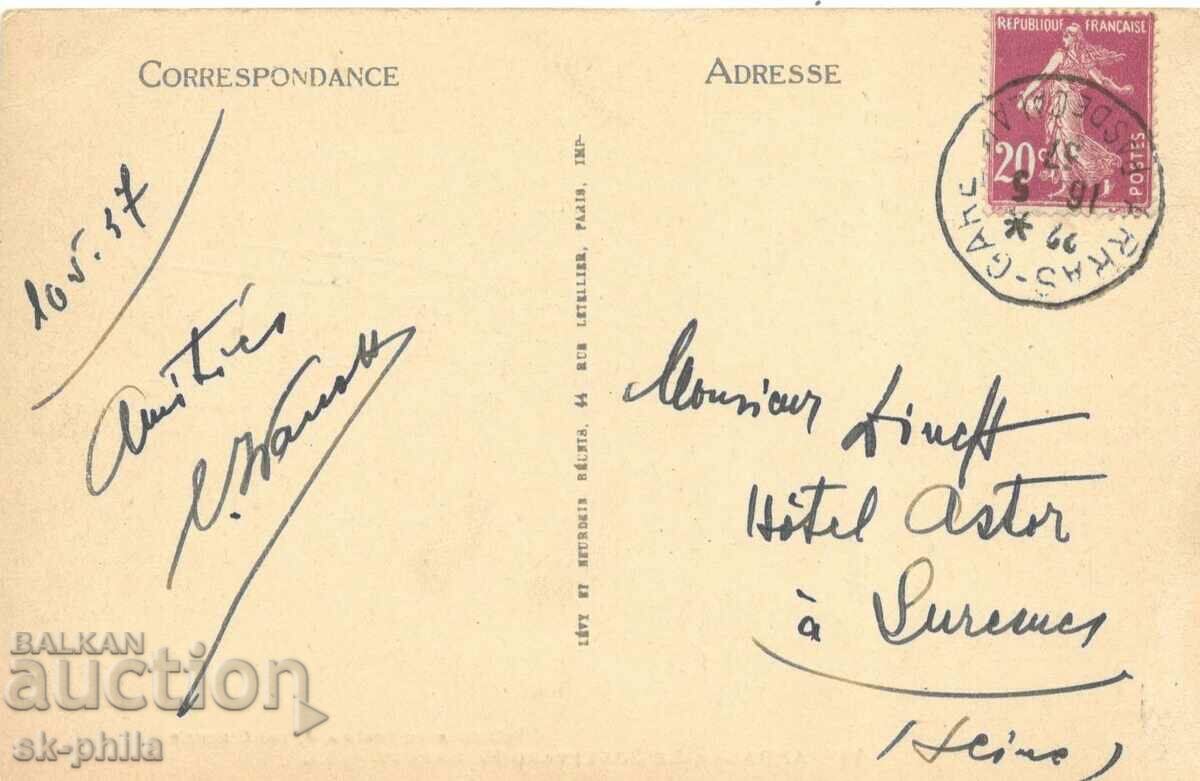 CORRESPONDANCE
10 V. 37
Amitiés
LÉVY ET NEURDEIN RÉUNIS, 44 RUE LETELLIER, PARIS, IMP-
ADRESSE
RÉPUBLIQUE FRANÇAISE
20c
POSTES
ARRAS-GARE
PAS DE CALAIS
22 *
16
5
37
Monsieur
Hôtel Astor
à Suresnes
(Seine)
BALKAN
auction
sk-phila